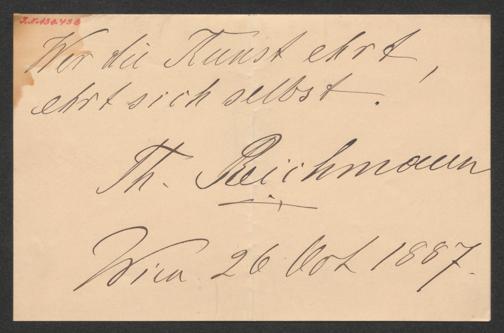 Wer die Kunst ehrt,
ehrt sich selbst.
Th. Reichmann
Wien 26 Oct 1887.